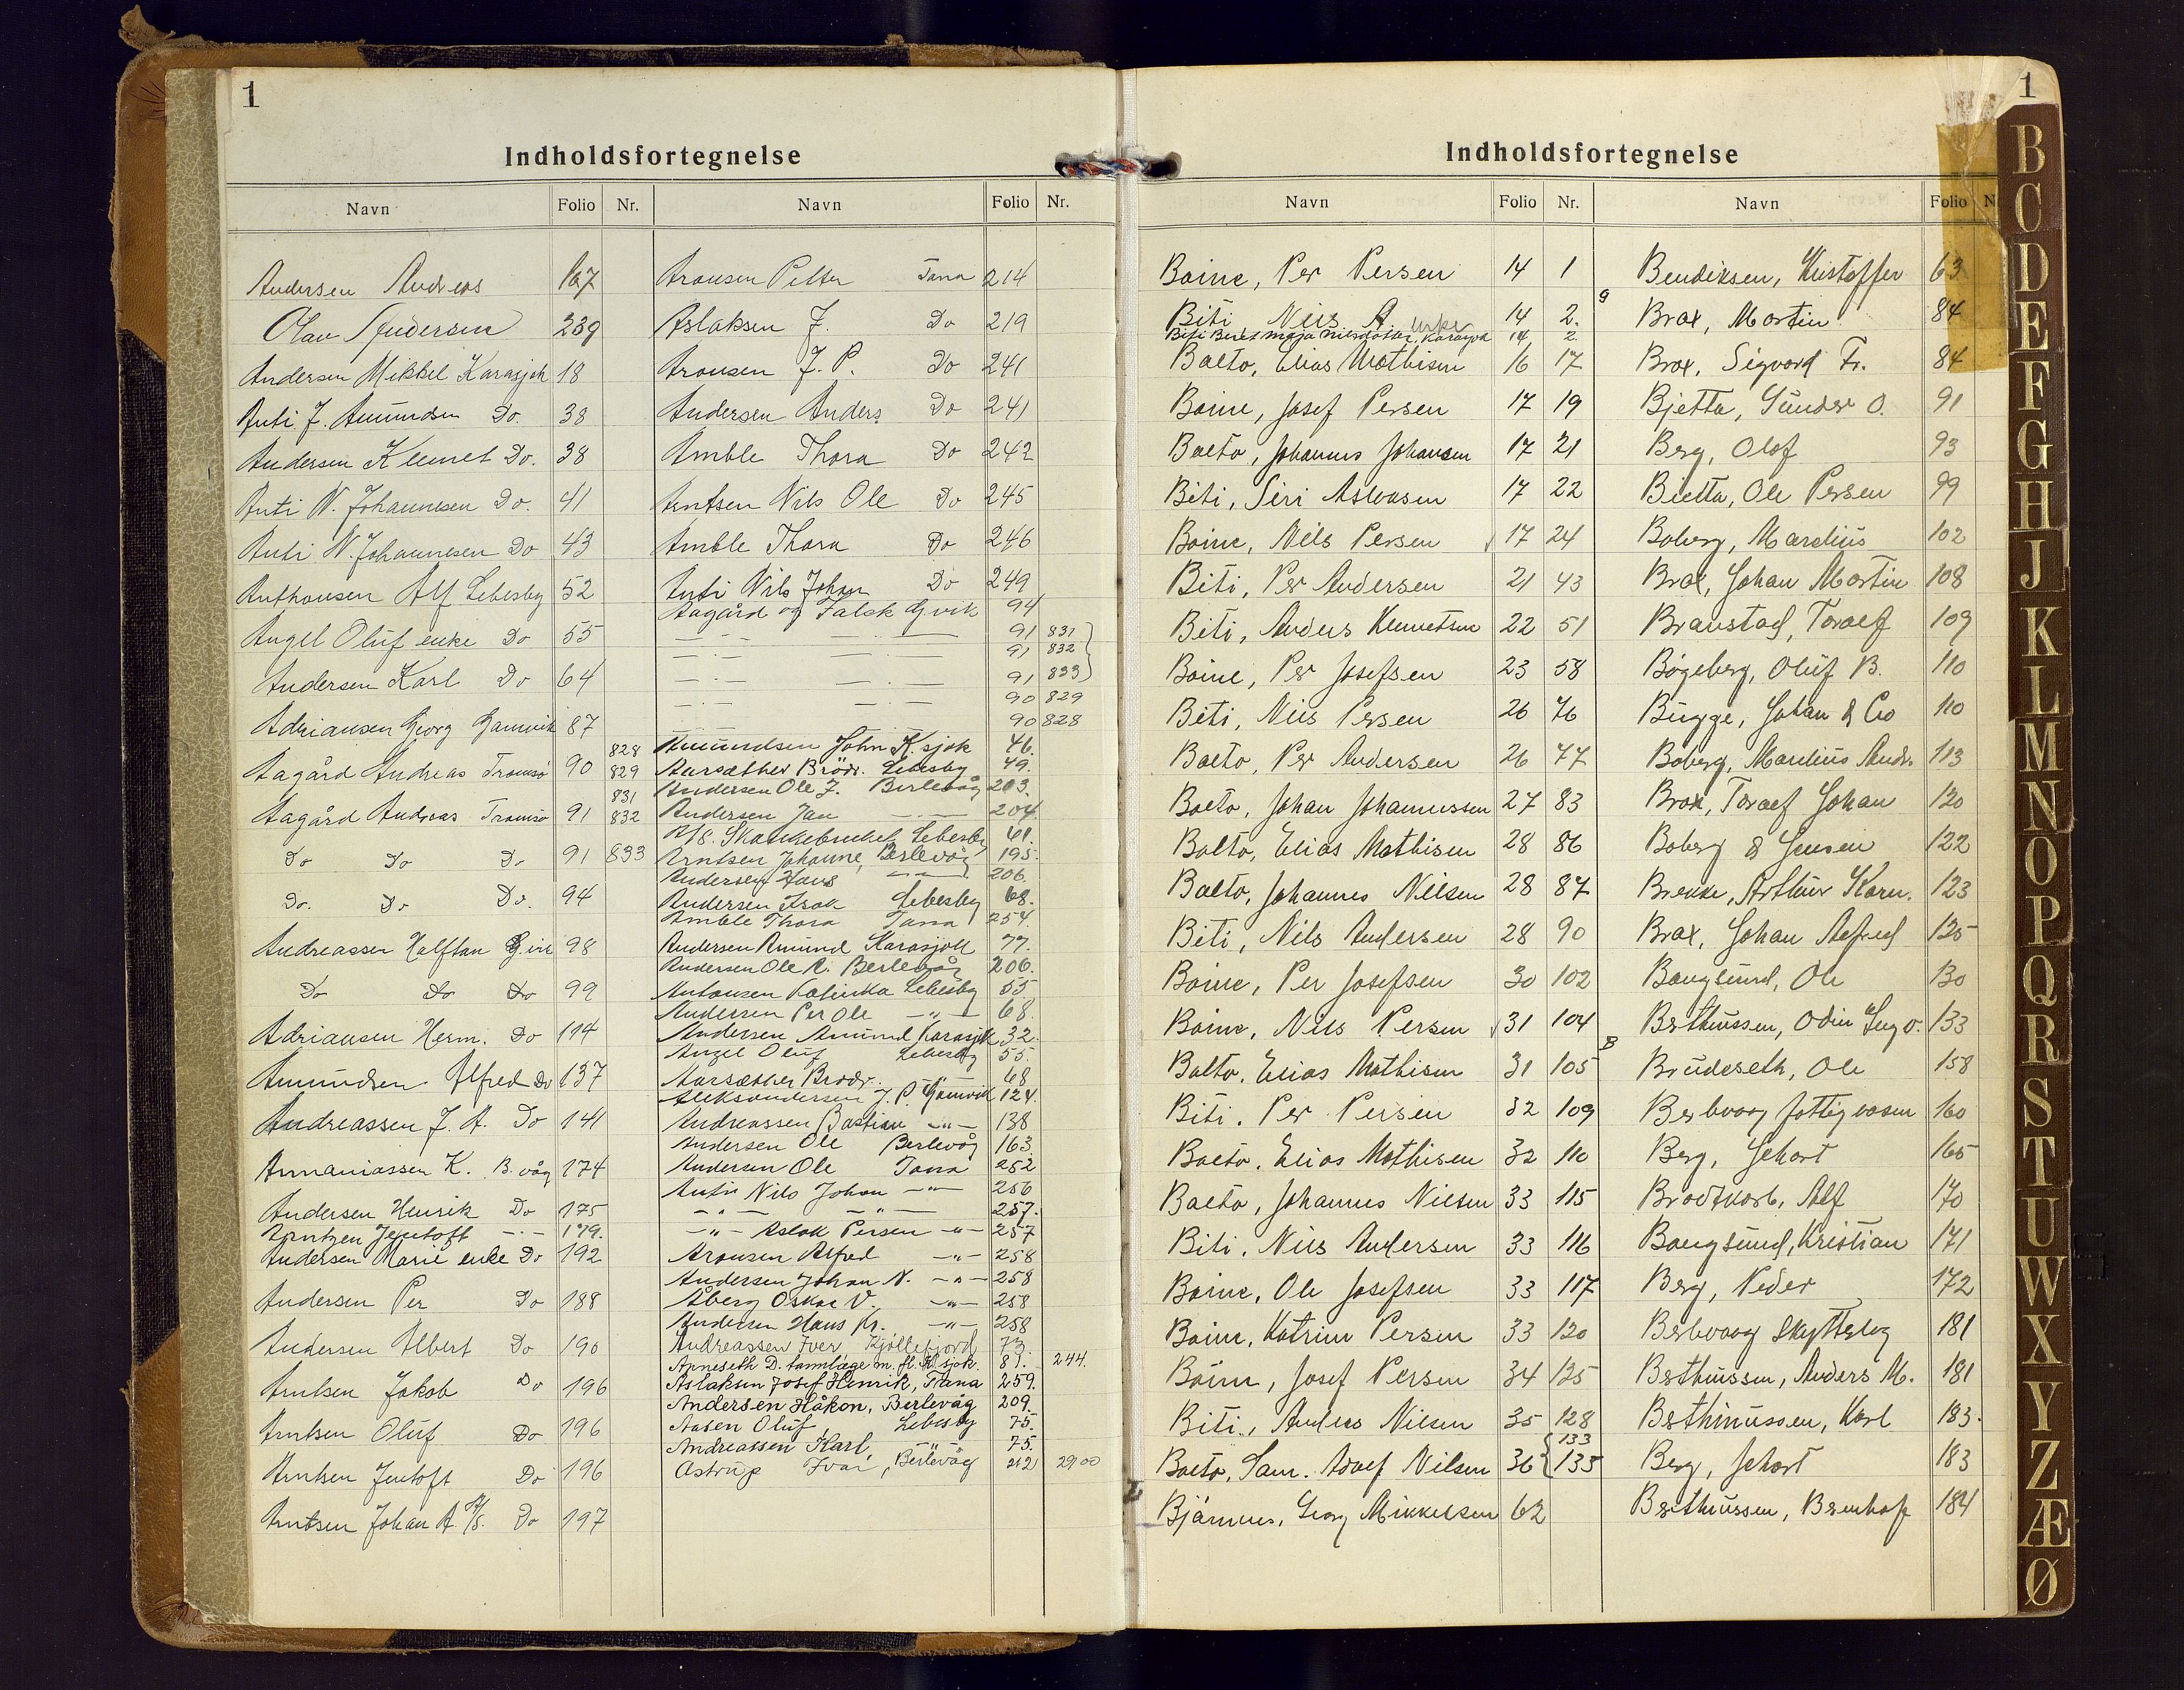 1
Indholdsfortegnelse
Navn Folio Nr. Navn Folio Nr.
Andersen Andreas 167
Olav Andersen 239
Andersen Mikkel Karasjok 18
Anti J. Amundsen Do. 38
Andersen Klemet Do. 38
Anti N. Johannesen Do. 41
Anti N. Johannesen Do 43
Anthonsen Alf Lebesby 52
Angel Oluf enke Do 55
Andersen Karl Do 64
Adriansen Georg Gamvik 87
Aagård Andreas Tromsø 90 828 829
Aagård Andreas Tromsø 91 831 832
Do Do Do 91 833
Do. Do Do. 94
Andreassen Halftan G.vik 98
Do Do Do 99
Adriansen Herm. Do 114
Amundsen Alfred Do 137
Andreassen J. A. Do 141
Annaniassen K. B.våg 174
Andersen Henrik Do 175
Arntzen Jentoft -·- 179.
Andersen Marie enke Do 192
Andersen Per Do 188
Andersen Albert Do 190
Arntsen Jakob Do 196
Arntsen Oluf Do 196
Arntsen Jentoft Do 196
Arntsen Johan A. A/S. Do 197
Aronsen Petter Tana 214
Aslaksen J. Do 219
Aronsen J. P. Do 241
Andersen Anders Do 241
Amble Thora Do 242
Arntsen Nils Ole Do 245
Amble Thora Do 246
Anti Nils Johan Do 249
Aagård og Falck G.vik 94
—·— —·— 91 831
—·— —·— 91 832
—·— —·— 91 833
—·— —·— 90 829
—·— —·— 90 828
Amundsen John K.sjok 46.
Aarsæther Brödr. Lebesby 49.
Andersen Ole J. Berlevåg 203.
Andersen Jan —·— 204.
A/S. Lebesby 61.
Arntsen Johanne, Berlevåg 195.
Andersen Hans —·— 206.
Andersen Isak Lebesby 68.
Amble Thora Tana 254.
Andersen Amund Karasjok 77.
Andersen Ole R. Berlevåg 206.
Antonsen Kalinka Lebesby 55
Andersen Per Ole —"— 68.
Andersen Amund Karasjok 32.
Angel Oluf Lebesby 55.
Aarsæther Brödr. —"— 68
Aleksandersen J. P. Gamvik 124.
Andreassen Bastian —"— 138
Andersen Ole Berlevåg 163.
Andersen Ole Tana 252
Anti Nils Johan —"— 256
—"— —"— 257.
—"— Aslak Persen —"— 257
Aronsen Alfred —"— 258
Andersen Johan N. —"— 258
Åberg Oskar V. —"— 258
Andersen Hans Kr. —"— 258
Andreassen Iver Kjøllefjord 73.
Apneseth D. tannlæge m. fl. K.sjok. 81. 244.
Aslaksen Josef Henrik, Tana 259.
Andersen Håkon, Berlevåg 209.
Aasen Oluf Lebesby 75.
Andreassen Karl —"— 75.
Astrup Ivar, Berlevåg 212 2900
1
Indholdsfortegnelse
Navn Folio Nr. Navn Folio N
Boine, Per Persen 14 1
Biti Nils A enke 14 2.
Biti Beret Maja Nilsdotter, Karasjok 14 2
Balto, Elias Mathisen 16 17
Boine, Josef Persen 17 19
Balto, Johannes Johansen 17 21
Biti, Siri Aslaksen 17 22
Boine, Nils Persen 17 24
Biti, Per Andersen 21 43
Biti, Anders Klemetsen 22 51
Boine, Per Josefsen 23 58
Biti, Nils Persen 26 76
Balto, Per Andersen 26 77
Balto, Johan Johannessen 27 83
Balto, Elias Mathisen 28 86
Balto, Johannes Nilsen 28 87
Biti, Nils Andersen 28 90
Boine, Per Josefsen 30 102
Boine, Nils Persen 31 104
Balto, Elias Mathisen 31 105
Biti, Per Persen 32 109
Balto, Elias Mathisen 32 110
Balto, Johannes Nilsen 33 115
Biti, Nils Andersen 33 116
Boine, Ole Josefsen 33 117
Boine, Katrine Persen 33 120
Boine, Josef Persen 34 125
Biti, Anders Nilsen 35 128
Balto, Sam. Adolf Nilsen 36 133 135
Bjarnnes, Georg Mikkelsen 62
Bendiksen, Kristoffer 63
Brox, Martin 84
Brox, Sigvard Fr. 84
Bjetta, Gunder O. 91
Berg, Olof 93
Bietta, Ole Persen 99
Boberg, Marelius 102
Brox, Johan Martin 108
Branstad, Toralf 109
Bøgeberg, Oluf B. 110
Bugge, Johan & Co 110
Boberg, Marelius Andr. 113
Brox, Toralf Johan 120
Boberg & Jensen 122
Brekke, Arthur Korn. 123
Brox, Johan Alfred 125
Bangsund, Ole 130
Berthussen, Odin Ingv. 133
Brudeseth, Ole 158
Berlevaag fattigvæsen 160
Berg, Gehart 165
Brodtkorb, Alf 170
Bangsund, Kristian 171
Berg, Peder 172
Berlevaag Skytterlag 181
Berthussen, Anders M. 181
Berthinussen, Karl 183.
Berg, Gehart 183
Berthussen, Bernhof 184
B
C
D
E
F
G
H
J
K
L
M
N
O
P
Q
R
S
T
U
W
X
Y
Z
Æ
Ø